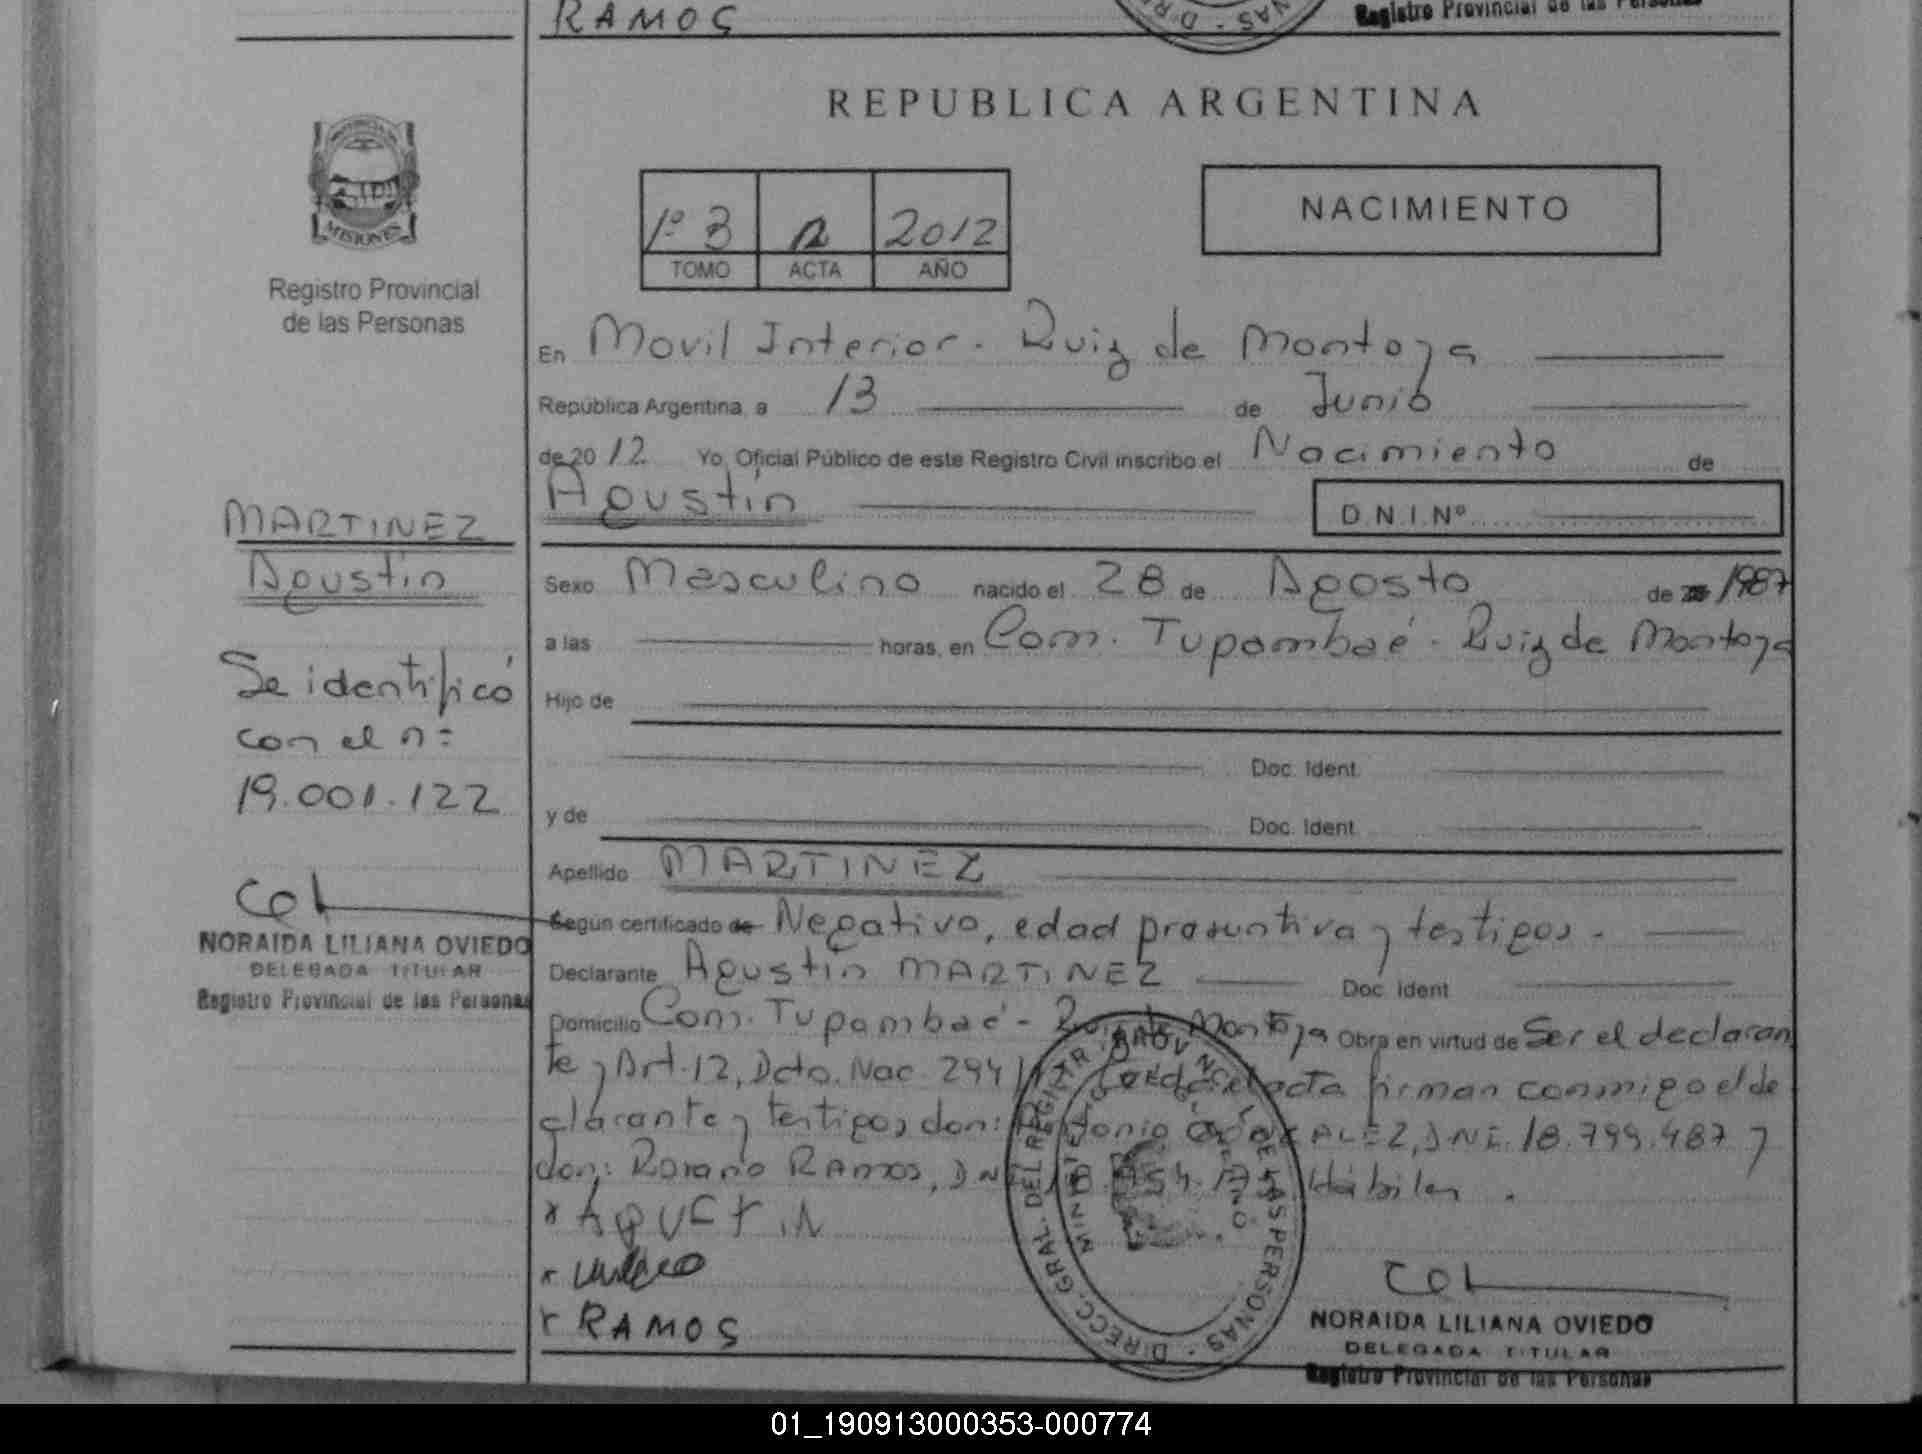 RAMOS
Registro Provincial de las Personas
REPUBLICA ARGENTINA
PROVINCIA DE
MISIONES
Registro Provincial
de las Personas
1º 3 2012
TOMO ACTA AÑO
NACIMIENTO
En Movil Interior - Ruiz de Montoya
República Argentina, a 13 de Junio
de 2012 Yo, Oficial Público de este Registro Civil inscribo el Nacimiento de
Agustín
D.N.I.Nº
MARTINEZ
Agustín
Se identificó
con el nº
19.001.122
NORAIDA LILIANA OVIEDO
DELEGADA TITULAR
Registro Provincial de las Personas
Sexo Masculino nacido el 28 de Agosto de 1987
a las horas, en Com. Tupambaé - Ruiz de Montoya
Hijo de
Doc. Ident.
y de Doc. Ident.
Apellido MARTINEZ
Según certificado de Negativo, edad presuntiva y testigos.
Declarante Agustín MARTINEZ Doc. Ident.
Domicilio Com. Tupambaé - Ruiz de Montoya Obra en virtud de Ser el declaran
te y Art. 12, Dcto. Nac. 294 acta firman conmigo el de
clarante y testigos don: Antonio GONZALEZ, DNI. 18.799.487 y
don: Rosario RAMOS, DNI Hábiles.
x AQUSTIN
x
x RAMOS
DIRECC. GRAL. DEL REGISTR. PROVINCIAL DE LAS PERSONAS
MINISTERIO DE GOBIERNO
NORAIDA LILIANA OVIEDO
DELEGADA TITULAR
Registro Provincial de las Personas
01_190913000353-000774